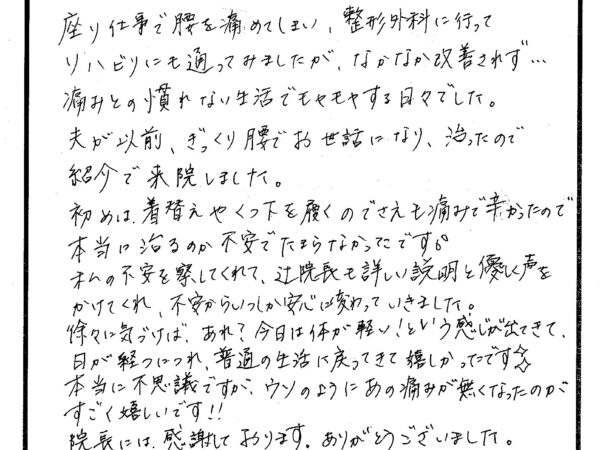 座り仕事で腰を痛めてしまい、整形外科に行って
リハビリにも通ってみましたが、なかなか改善されず…
痛みとの慣れない生活でモヤモヤする日々でした。
夫が以前、ぎっくり腰でお世話になり、治ったので
紹介で来院しました。
初めは、着替えやくつ下を履くのでさえも痛みで辛かったので
本当に治るのか不安でたまらなかったです。
私の不安を察してくれて、辻院長も詳しい説明と優しく声を
かけてくれ、不安からいつしか安心に変わっていきました。
徐々に気づけば、あれ？今日は体が軽い！という感じが出てきて、
日が経つにつれ、普通の生活に戻ってきて嬉しかったです☆
本当に不思議ですが、ウソのようにあの痛みが無くなったのが
すごく嬉しいです!!
院長には、感謝しております。ありがとうございました。